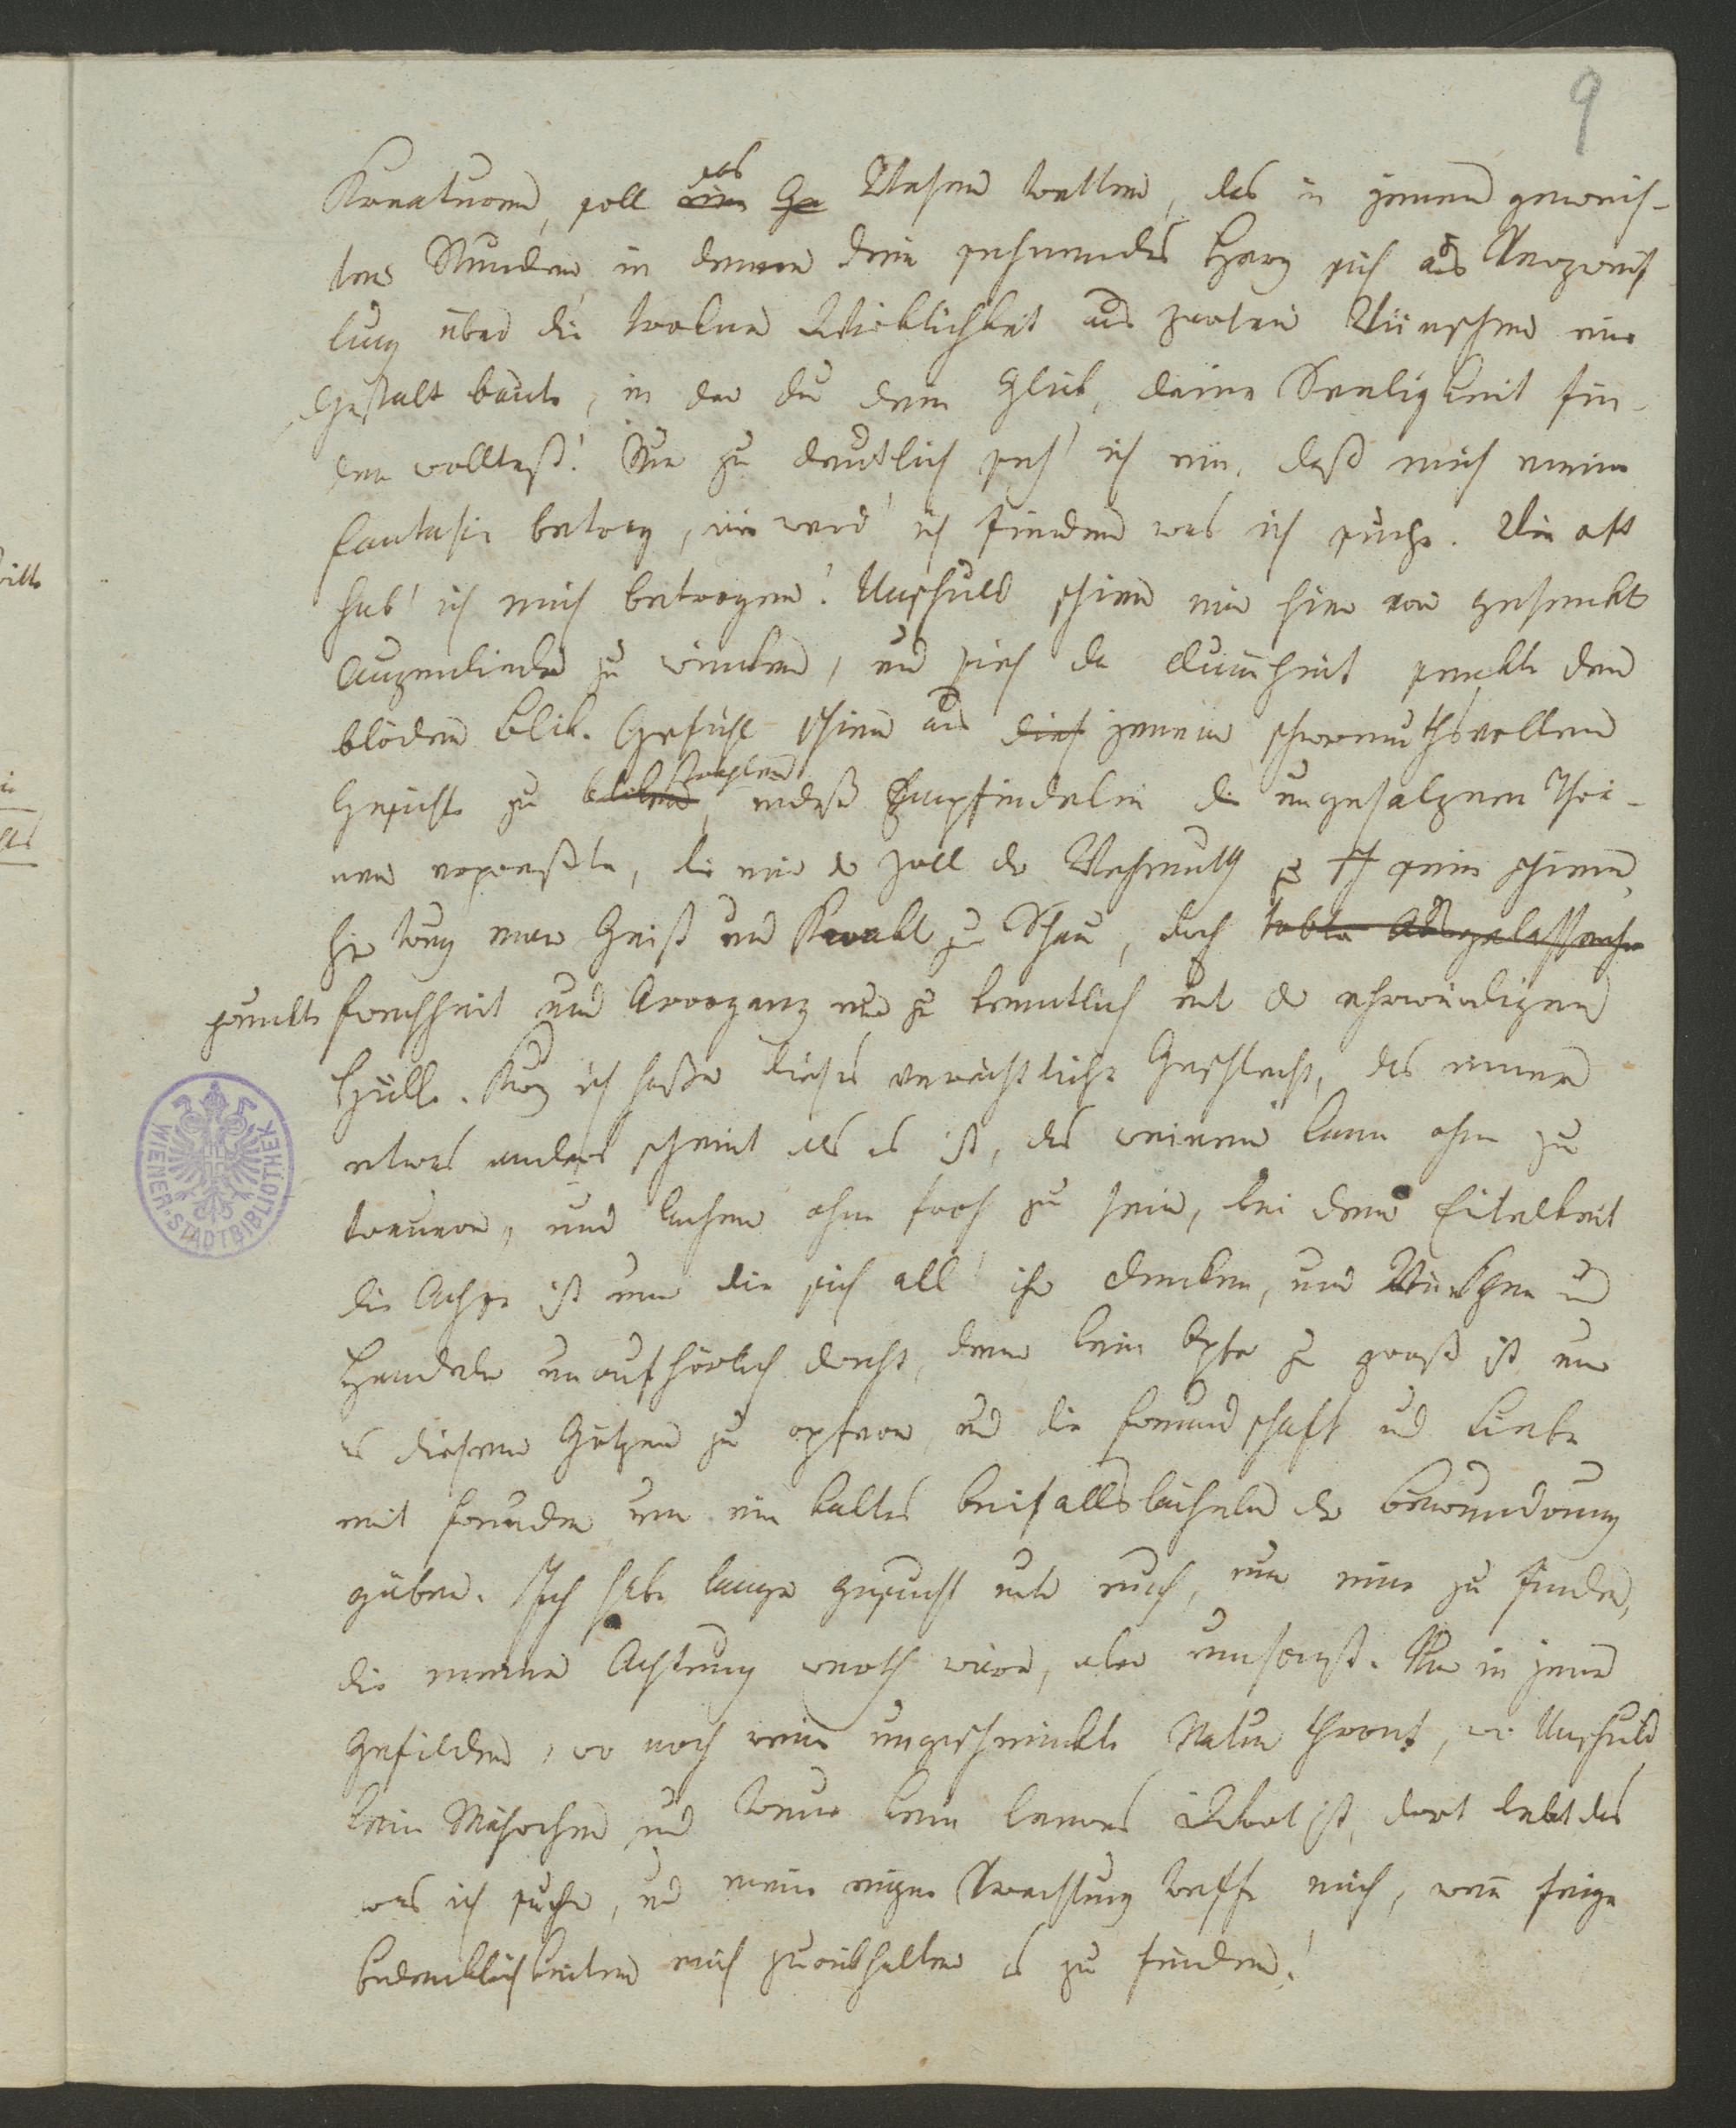 9
Kreaturen, soll das Wesen walten, das in jenen geweih-
ten Stunden in denen dein sehnendes Herz sich aus Verzweif
lung über die trokne Wirklichkeit aus zarten Wünschen eine
Gestalt baute, in der du dein Glük, deine Seeligkeit fin-
den wolltest! Nur zu deutlich seh' ich ein, daß mich meine
Fantasie betrog, nie werd' ich finden was ich suche. Wie oft
hab' ich mich betrogen! Unschuld schien mir hier von gesenkte
Augenlieder zu winken, und sieh da Dummheit senkte den
blöden Blik. Gefühl schien aus jenem schwermuthsvollen
Gesichte zu strahlen, indeß Empfindelei die ungesalznen Thrä-
nen erpreßte, die mir der Zoll der Wehmuth zu sein schienen,
hier trug man Geist und zu Schau, doch
guckte Frechheit und Arroganz nur zu kenntlich aus der ehrwürdigen
Hülle. Kurz ich hasse dieses verächtliche Geschlecht, das immer
etwas anders scheint als es ist, das weinen kann ohne zu
trauern, und lachen ohne froh zu sein, bei dem Eitelkeit
die Achse ist um die sich all' ihr Denken, und Wünschen u
Handeln unaufhörlich dreht, dem kein Opfer zu groß ist um
es diesem Götzen zu opfern, und die Freundschaft und Liebe
mit Freuden um ein kaltes Beifallslächeln der Bewundrung
gäben. Ich habe lange gesucht unter euch, um eine zu finden,
die meiner Achtung werth wäre, aber umsonst. Nur in jenen
Gefilden, wo noch reine ungeschminkte Natur thront, wo Unschuld
kein Mährchen und Treue kein leeres Wort ist, dort lebt das
was ich suche, und meine eigne Verachtung treffe mich, wenn feige
Bedenklichkeiten mich zurükhalten es zu finden!
WIENER-STADTBIBLIOTHEK